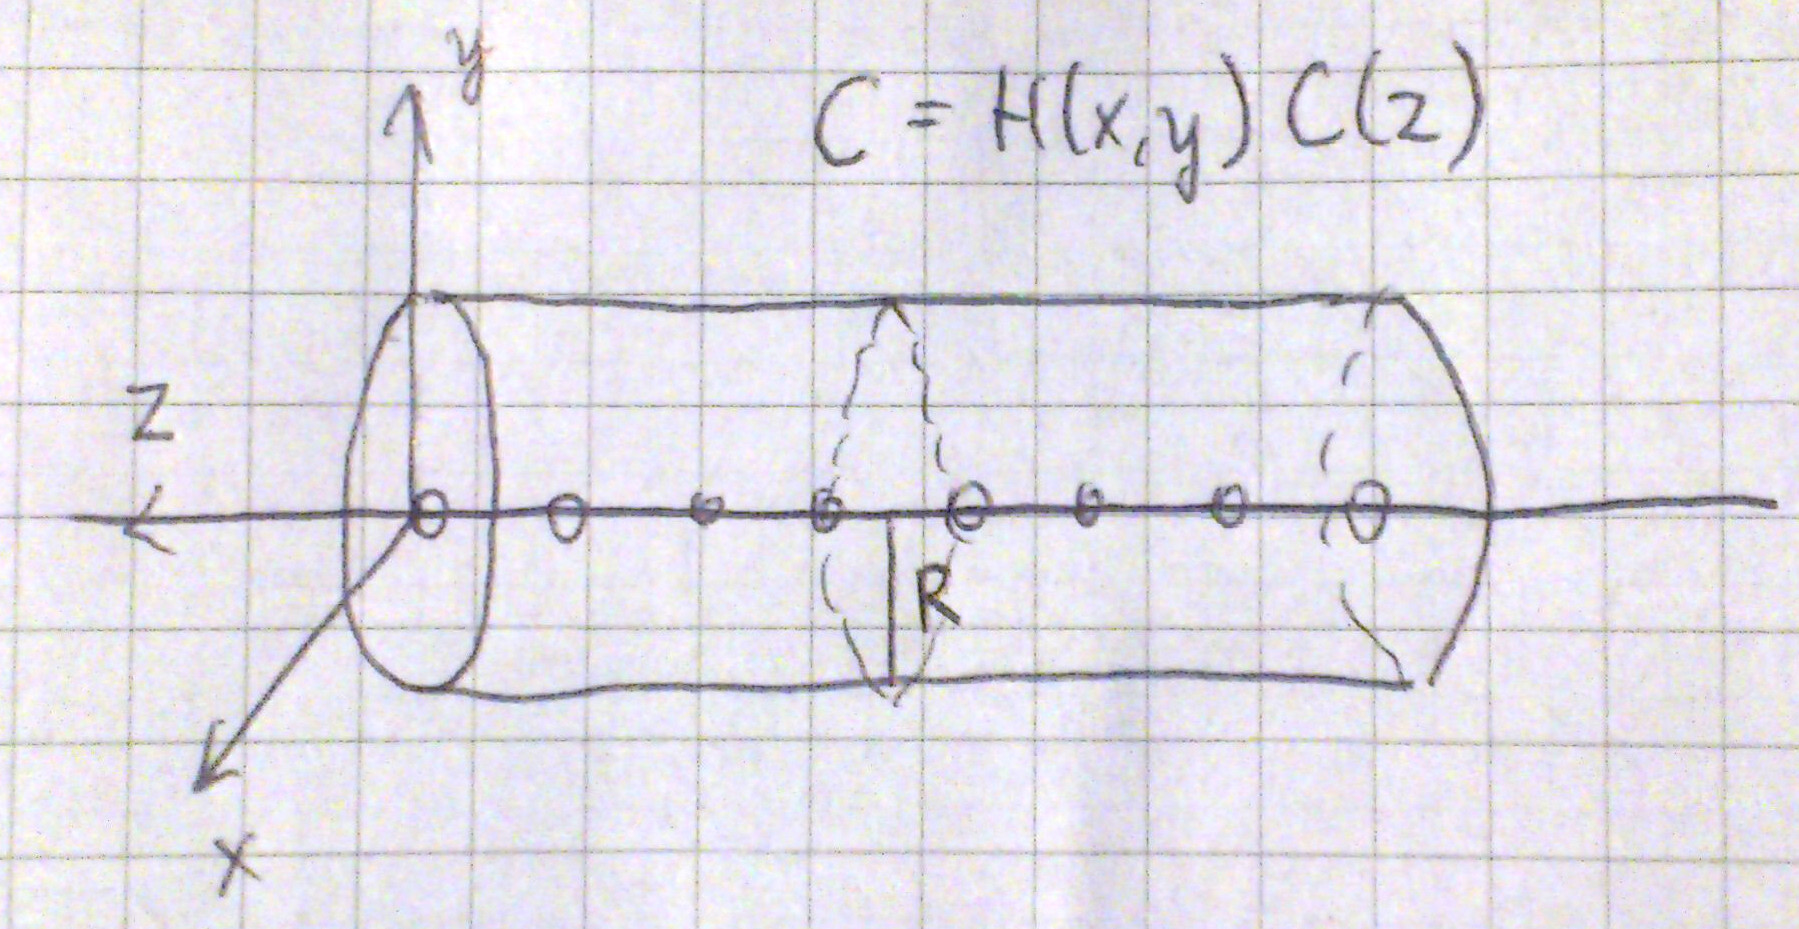 y
C = H(x,y) C(z)
z
R
x